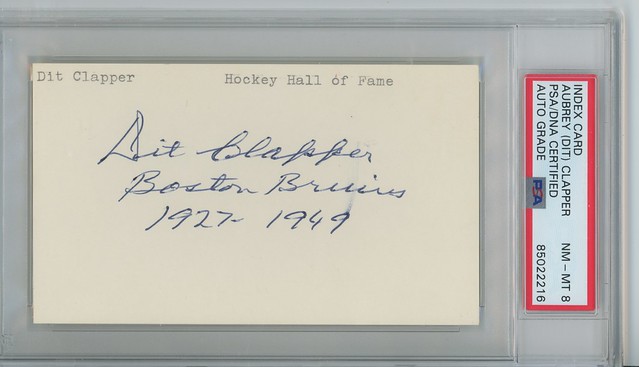 Dit Clapper Hockey Hall of Fame
Dit Clapper
Boston Bruins
1927- 1949
INDEX CARD
AUBREY (DIT) CLAPPER NM - MT 8
PSA/DNA CERTIFIED
AUTO GRADE PSA 85022216